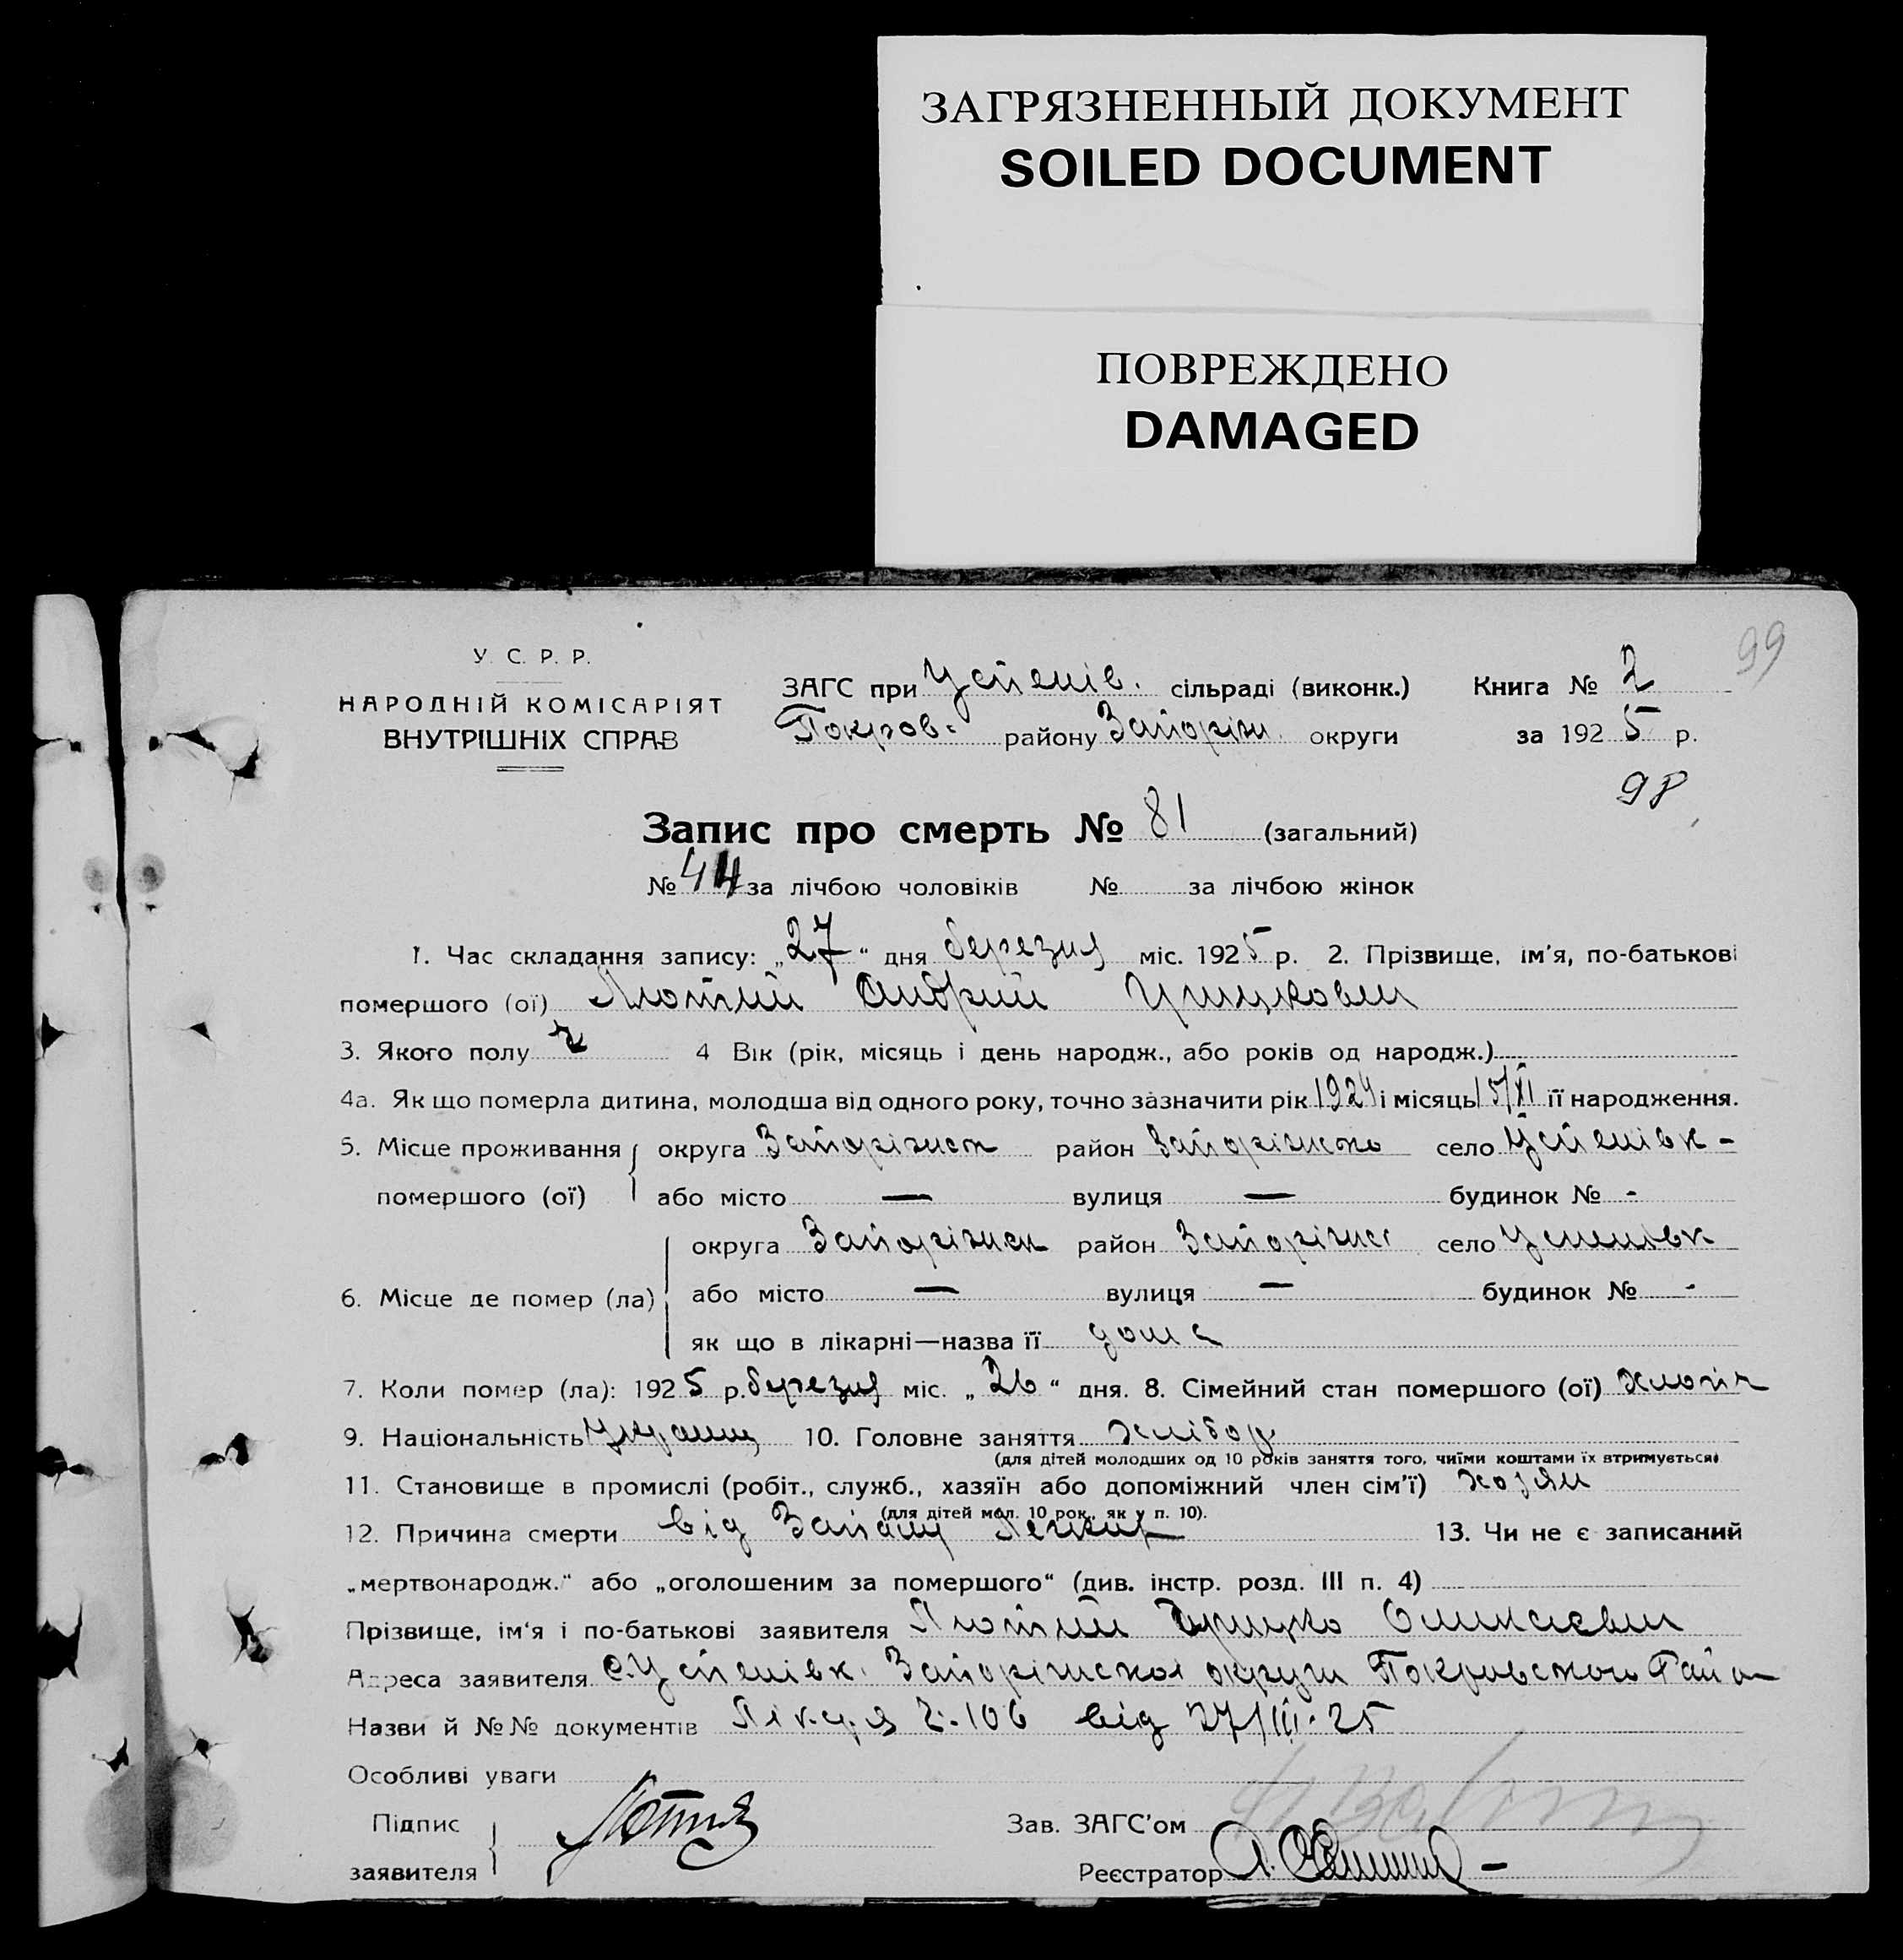 ЗАГРЯЗНЕННЫЙ ДОКУМЕНТ
SOILED DOCUMENT
ПОВРЕЖДЕНО
DAMAGED
99
У. С. Р. Р.
НАРОДНІЙ КОМІСАРІЯТ
ВНУТРІШНІХ СПРАВ
ЗАГС при Успенів. сільраді (виконк.) Книга № 2
Покров. району Запоріж. округи за 1925 р.
98
Запис про смерть № 81 (загальний)
№ 44 за лічбою чоловіків № за лічбою жінок
1. Час складання запису: „27“ дня березня міс. 1925 р. 2. Прізвище, ім'я, по-батькові
помершого (ої) Лютий Андрий Грицкович
3. Якого полу ч 4 Вік (рік, місяць і день народж., або років од народж.)
4а. Як що померла дитина, молодша від одного року, точно зазначити рік 1924 і місяць 15/XI її народження.
5. Місце проживання округа Запоріжськ район Запоріжсько село Успенівк -
помершого (ої) або місто — вулиця — будинок № -
округа Запоріжськ район Запоріжс село Успенівк
6. Місце де помер (ла) або місто — вулиця — будинок № -
як що в лікарні—назва її дома
7. Коли помер (ла): 1925 р. березня міс. „26“ дня. 8. Сімейний стан помершого (ої) хлопіч
9. Національність Украинц 10. Головне заняття хлібор
(для дітей молодших од 10 років заняття того, чиїми коштами їх втримується)
11. Становище в промислі (робіт., служб., хазяїн або допоміжний член сім'ї) хозяи
(для дітей мол. 10 рок., як у п. 10).
12. Причина смерти від Запалу Легких 13. Чи не є записаний
„мертвонародж.“ або „оголошеним за помершого“ (див. інстр. розд. III п. 4)
Прізвище, ім'я і по-батькові заявителя Лютий Грицко Оликсієвич
Адреса заявителя с. Успенівк. Запоріжської округи Покровського Райо
Назви й №№ документів Лік. ч. 106 від 27/III-25
Особливі уваги
Підпис
заявителя Лютий
Зав. ЗАГС'ом
Реєстратор